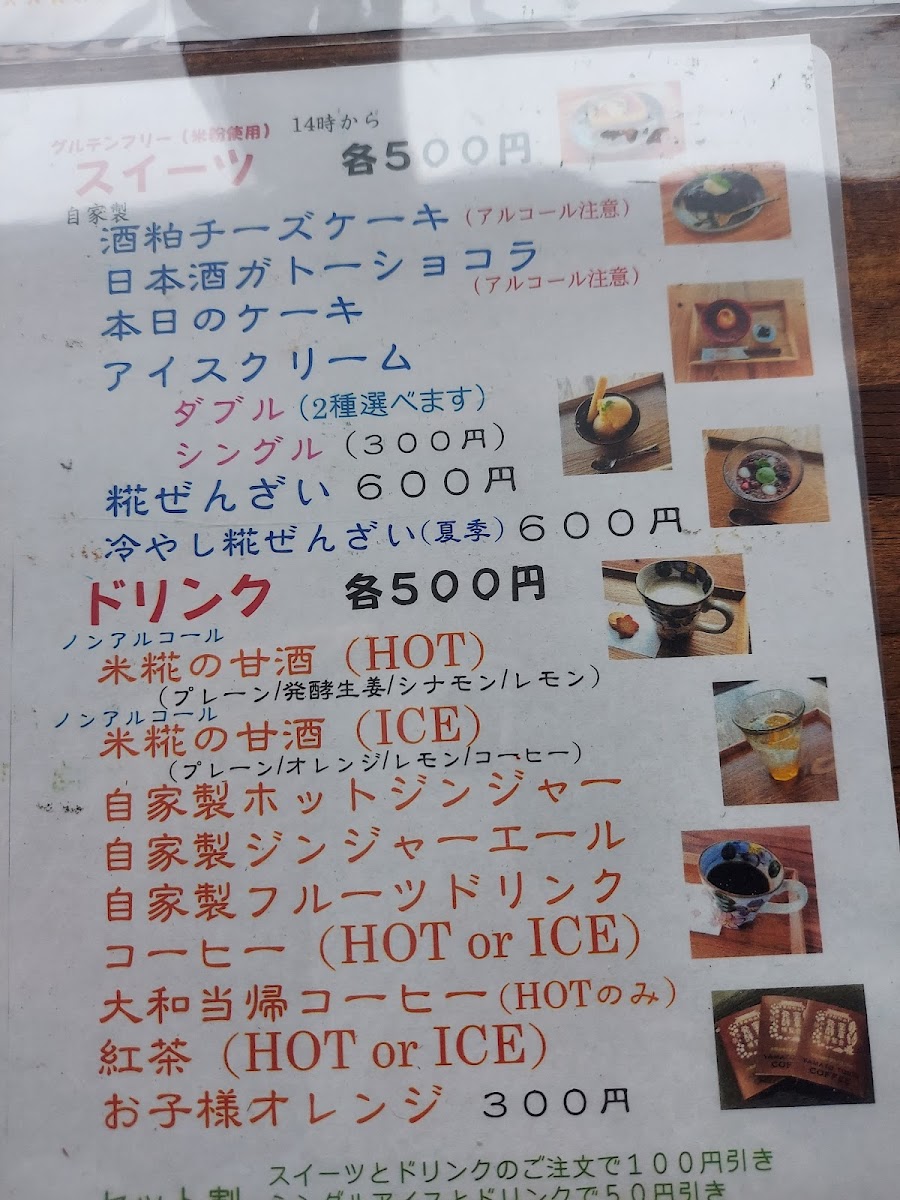 グルテンフリー（米粉使用） 14時から
スイーツ 各５００円
自家製
酒粕チーズケーキ（アルコール注意）
日本酒ガトーショコラ
（アルコール注意）
本日のケーキ
アイスクリーム
ダブル（2種選べます）
シングル（３００円）
糀ぜんざい ６００円
冷やし糀ぜんざい（夏季）６００円
ドリンク 各500円
ノンアルコール
米糀の甘酒（HOT）
（プレーン/発酵生姜/シナモン/レモン）
ノンアルコール
米糀の甘酒（ICE）
（プレーン/オレンジ/レモン/コーヒー）
自家製ホットジンジャー
自家製ジンジャーエール
自家製フルーツドリンク
コーヒー（HOT or ICE）
大和当帰コーヒー（HOTのみ）
紅茶（HOT or ICE）
お子様オレンジ ３００円
スイーツとドリンクのご注文で１００円引き
セット割 シングルアイスとドリンクで５０円引き